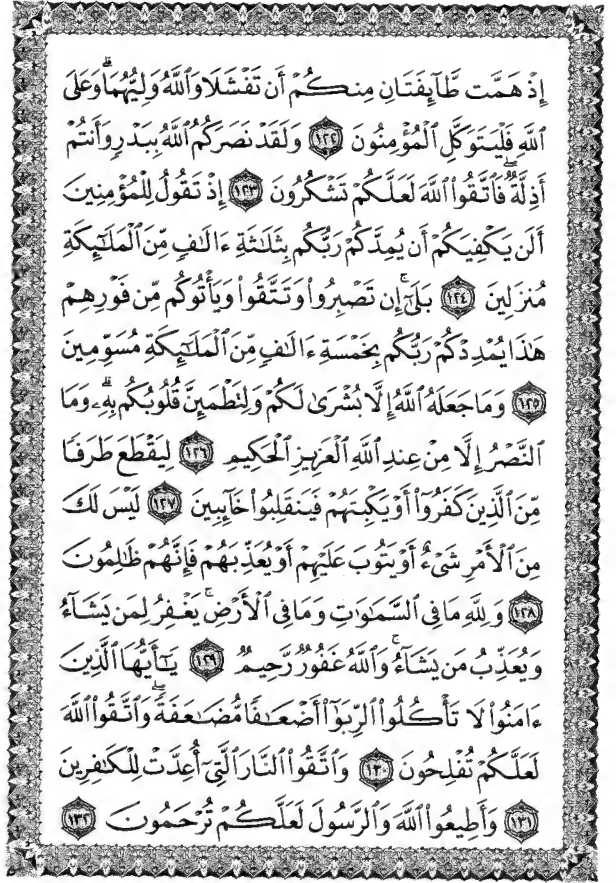 إِذْ هَمَّت طَّآئِفَتَانِ مِنكُمْ أَن تَفْشَلَا وَاللَّهُ وَلِيُّهُمَا ۗ وَعَلَى
اللَّهِ فَلْيَتَوَكَّلِ الْمُؤْمِنُونَ ١٢٢ وَلَقَدْ نَصَرَكُمُ اللَّهُ بِبَدْرٍ وَأَنتُمْ
أَذِلَّةٌ ۖ فَاتَّقُوا اللَّهَ لَعَلَّكُمْ تَشْكُرُونَ ١٢٣ إِذْ تَقُولُ لِلْمُؤْمِنِينَ
أَلَن يَكْفِيَكُمْ أَن يُمِدَّكُمْ رَبُّكُم بِثَلَٰثَةِ ءَالَٰفٍ مِّنَ الْمَلَٰٓئِكَةِ
مُنزَلِينَ ١٢٤ بَلَىٰٓ ۚ إِن تَصْبِرُوا وَتَتَّقُوا وَيَأْتُوكُم مِّن فَوْرِهِمْ
هَٰذَا يُمْدِدْكُمْ رَبُّكُم بِخَمْسَةِ ءَالَٰفٍ مِّنَ الْمَلَٰٓئِكَةِ مُسَوِّمِينَ
١٢٥ وَمَا جَعَلَهُ اللَّهُ إِلَّا بُشْرَىٰ لَكُمْ وَلِتَطْمَئِنَّ قُلُوبُكُم بِهِۦ ۗ وَمَا
النَّصْرُ إِلَّا مِنْ عِندِ اللَّهِ الْعَزِيزِ الْحَكِيمِ ١٢٦ لِيَقْطَعَ طَرَفًا
مِّنَ الَّذِينَ كَفَرُوٓا أَوْ يَكْبِتَهُمْ فَيَنقَلِبُوا خَآئِبِينَ ١٢٧ لَيْسَ لَكَ
مِنَ الْأَمْرِ شَىْءٌ أَوْ يَتُوبَ عَلَيْهِمْ أَوْ يُعَذِّبَهُمْ فَإِنَّهُمْ ظَٰلِمُونَ
١٢٨ وَلِلَّهِ مَا فِى السَّمَٰوَٰتِ وَمَا فِى الْأَرْضِ ۚ يَغْفِرُ لِمَن يَشَآءُ
وَيُعَذِّبُ مَن يَشَآءُ ۚ وَاللَّهُ غَفُورٌ رَّحِيمٌ ١٢٩ يَٰٓأَيُّهَا الَّذِينَ
ءَامَنُوا لَا تَأْكُلُوا الرِّبَوٰٓا أَضْعَٰفًا مُّضَٰعَفَةً ۖ وَاتَّقُوا اللَّهَ
لَعَلَّكُمْ تُفْلِحُونَ ١٣٠ وَاتَّقُوا النَّارَ الَّتِىٓ أُعِدَّتْ لِلْكَٰفِرِينَ
١٣١ وَأَطِيعُوا اللَّهَ وَالرَّسُولَ لَعَلَّكُمْ تُرْحَمُونَ ١٣٢